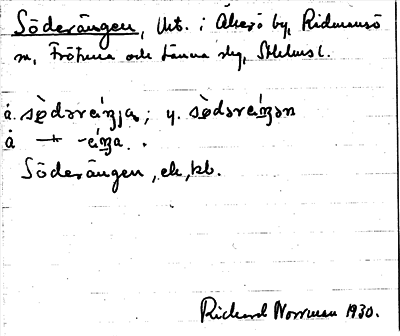 Söderängen, Utt. i Åkerö by, Ridmansö
sn, Frötuna och Länna slg, Sthlms l.
å. sè̀dəreiŋja; y. sè̀dəreiŋən
å → -eiŋa.
Söderängen, ek, kb.
Richard Norrman 1930.